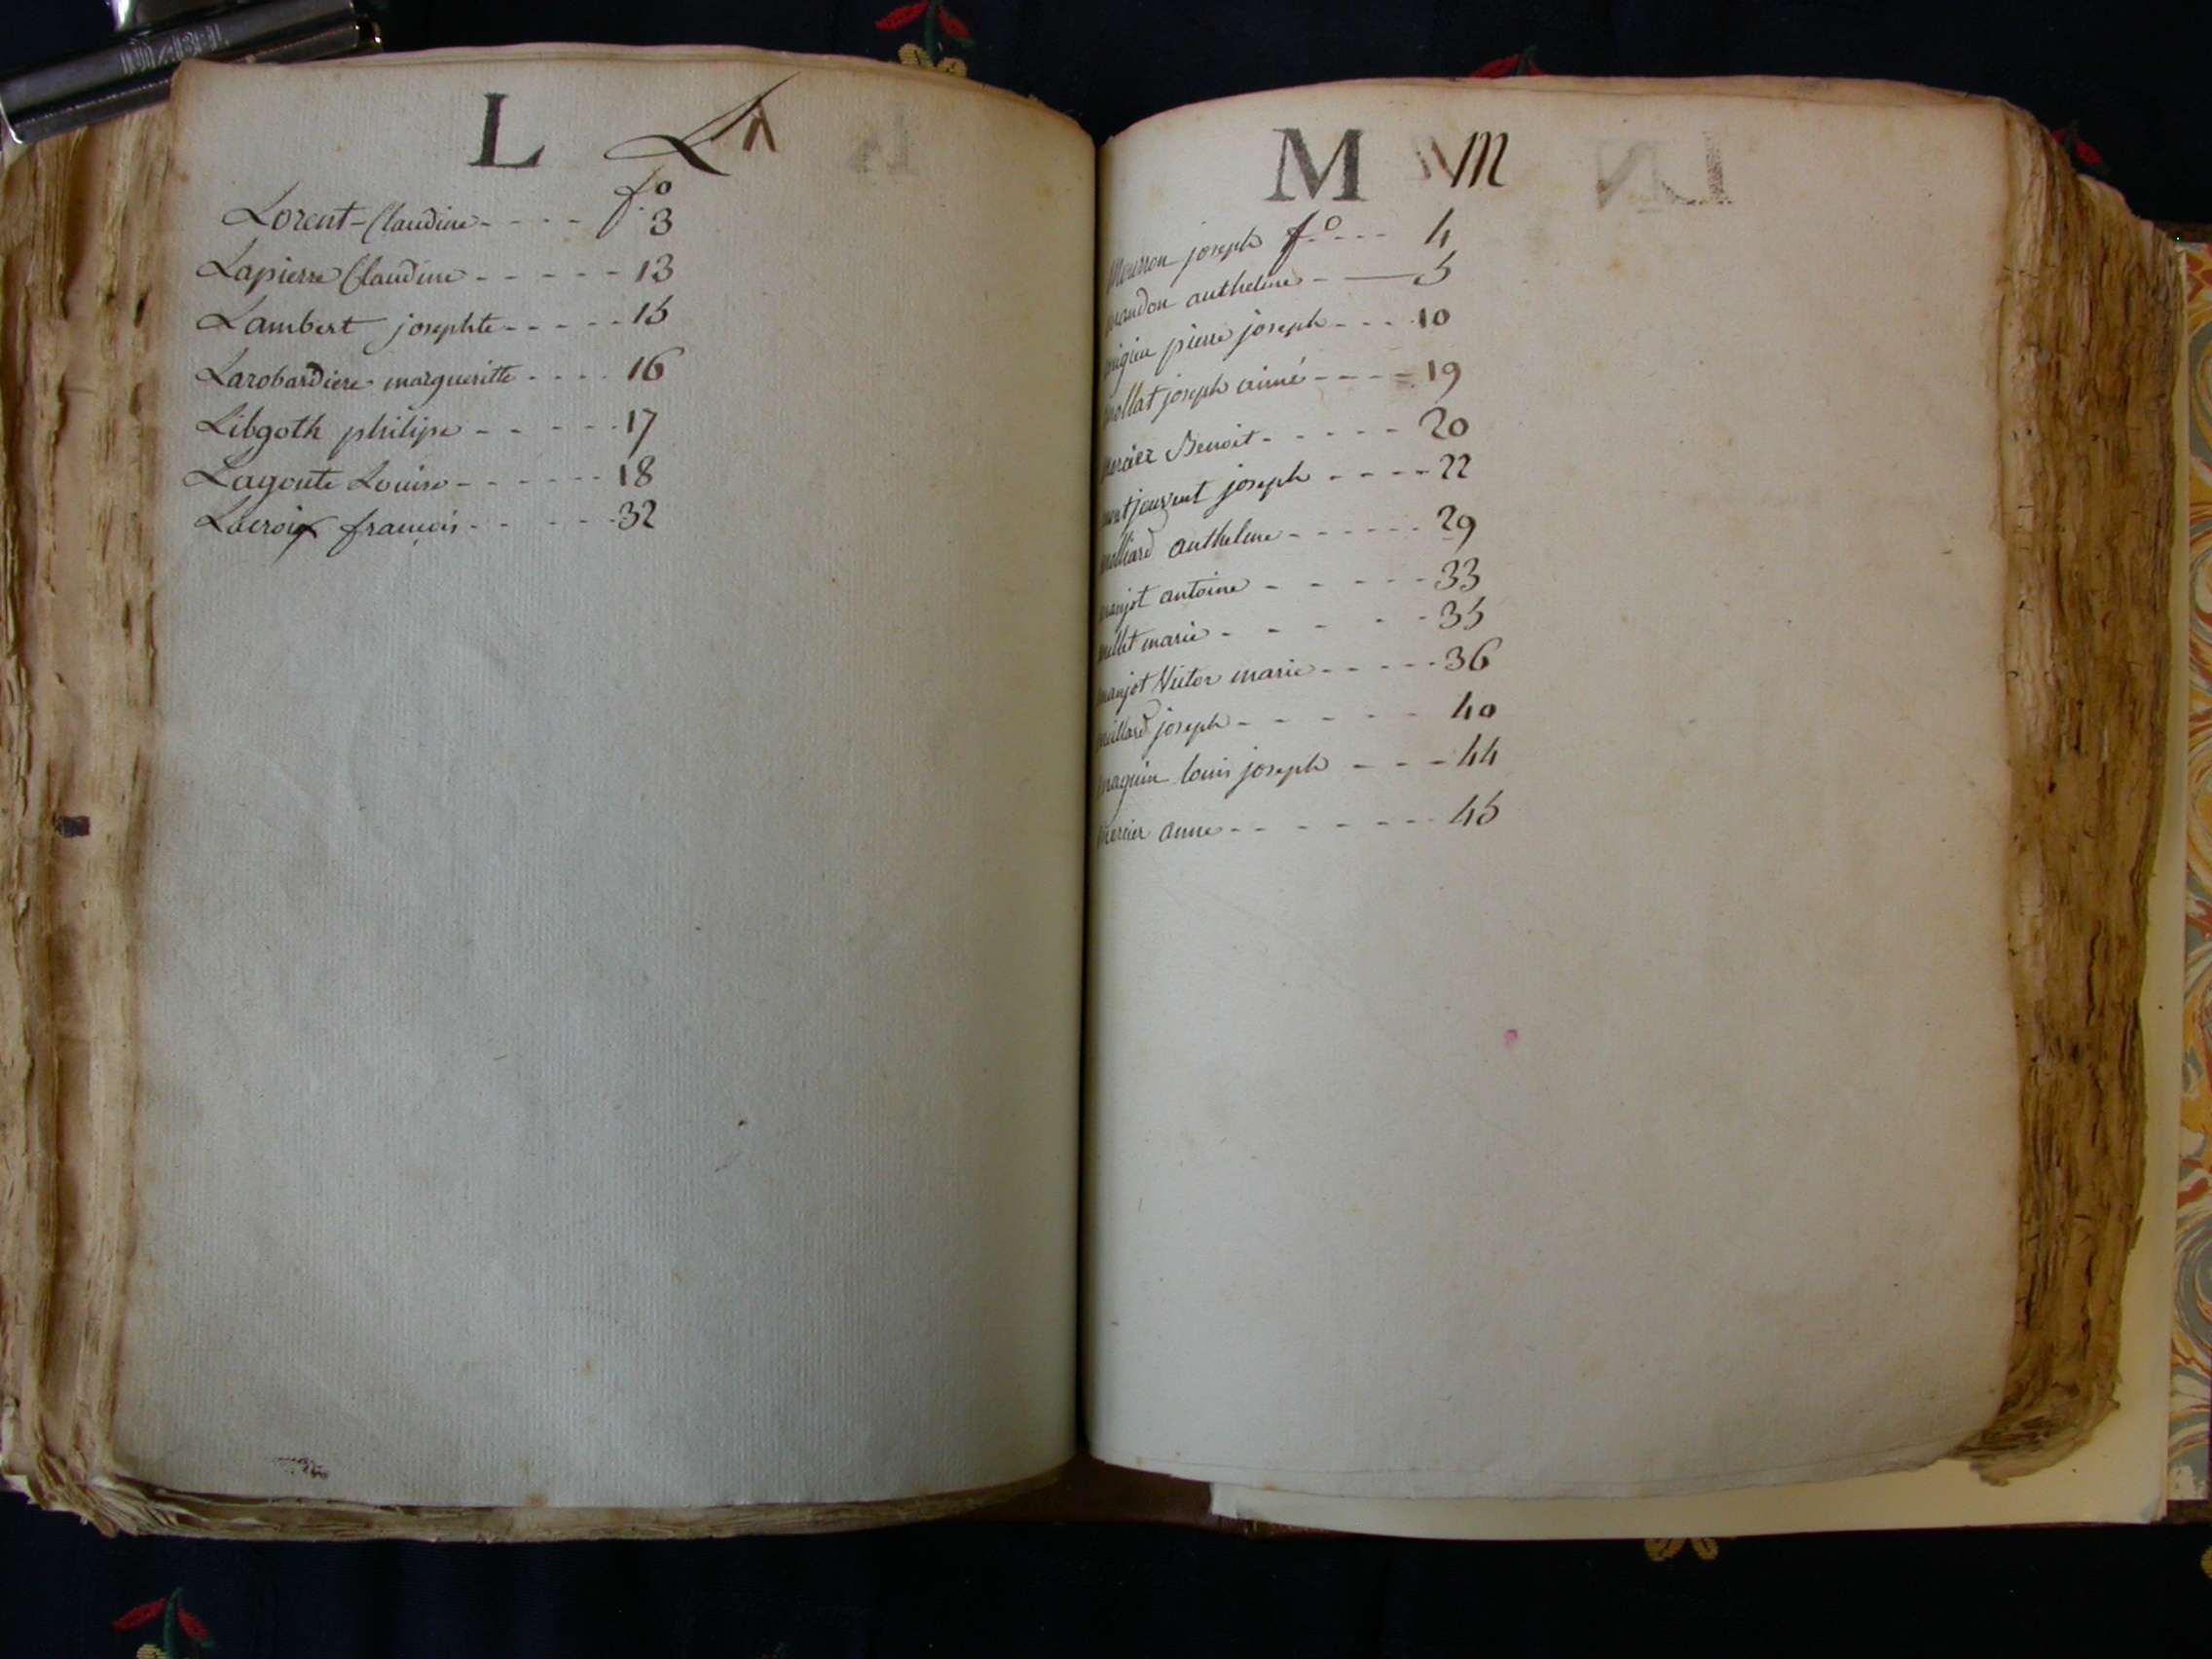 L L
Lorent-Claudine - - - - fo 3
Lapierre Claudine - - - - - 13
Lambert josephte - - - - - 15
Larobardiere margueritte - - - - 16
Libgoth philipe - - - - - 17
Lagoute Louise - - - - - - 18
Lacroix francois - - - - - 32
M M
joseph fo - - - 4
anthelme - 5
pierre joseph - - - 10
mollat joseph aimé - - - - 19
mercier Benoit - - - - - 20
montjouvent joseph - - - - 22
molliard anthelme - - - - - 29
manjot antoine - - - - - 33
millet marie - - - - - 35
manjot Victor marie - - - - - 36
millard joseph - - - - - 40
maguin louis joseph - - - 44
mercier anne - - - - - - 45